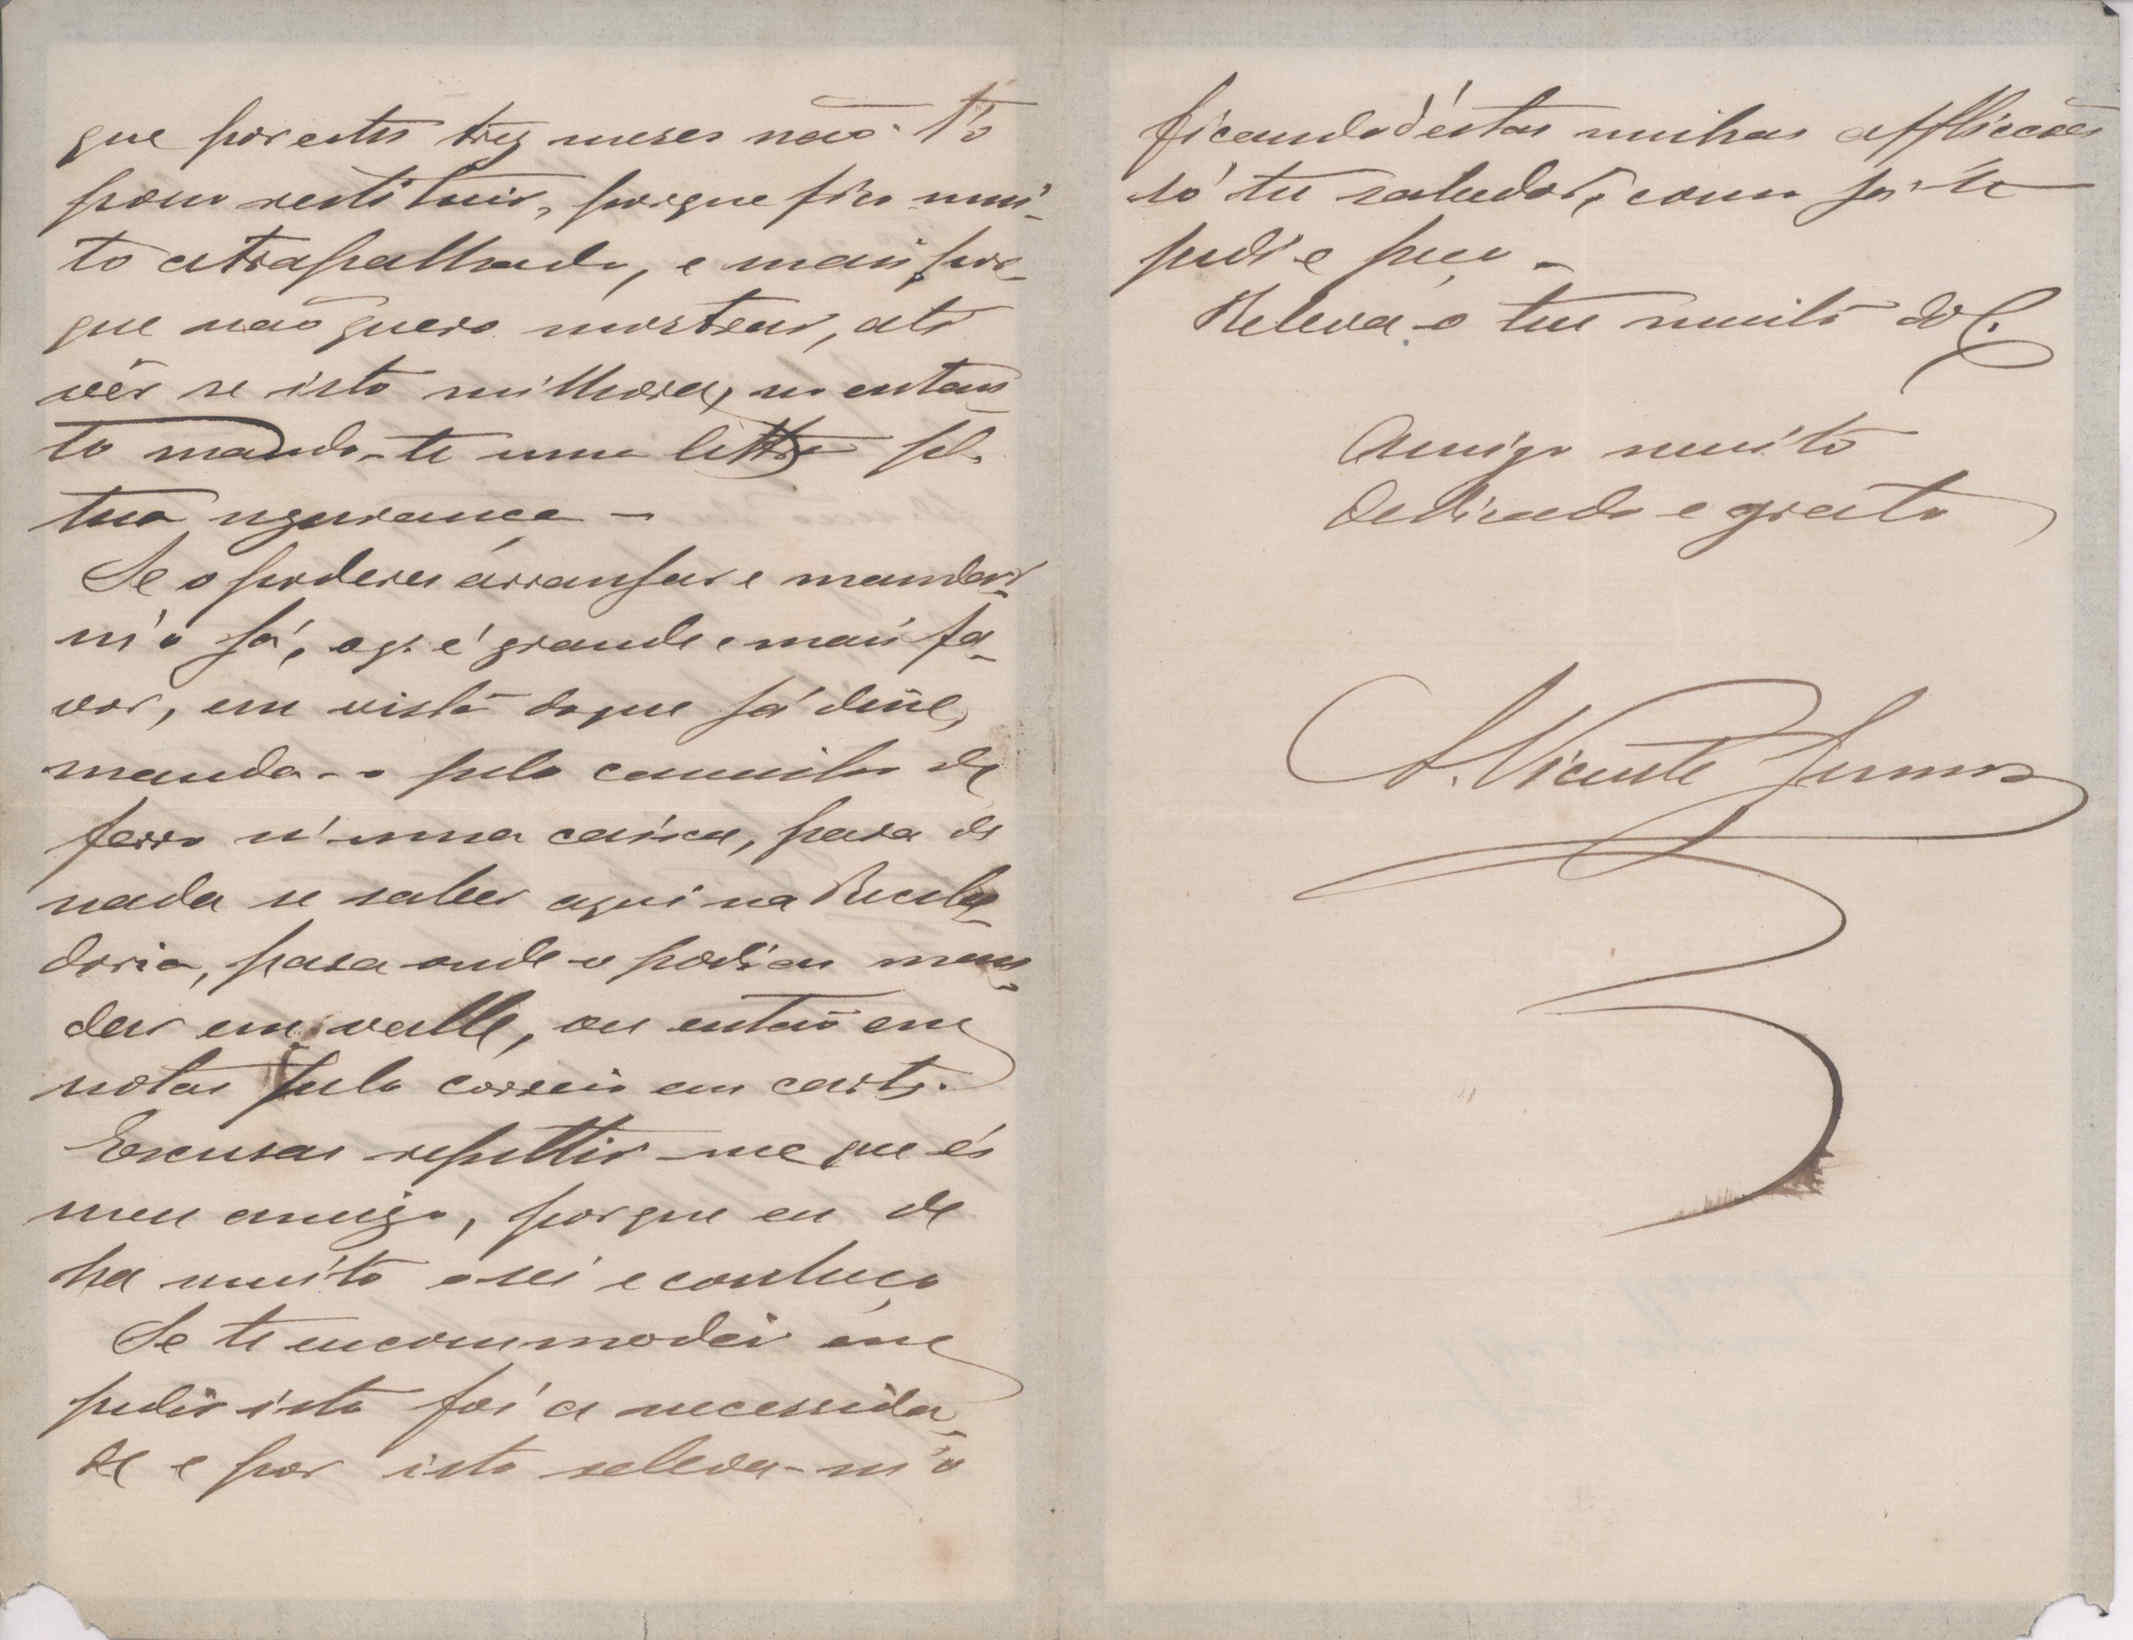 que por estes trez meses não t'o
posso restituir, porque fico mui-
to atrapalhado, e mais por-
que não quero mostrar, até
vêr se isto milhora, no entan-
to mando-te uma lettra pª
tua segurança -
Se o poderes arranjar e mandar-
m'o já, o q. é grande e mais fa-
vor, em vista do que já disse,
manda-o pelo caminho de
ferro n'uma caixa, para de
nada se saber aqui na Recebe-
doria, para onde o podias man-
dar em valle, ou então em
notas pelo correio em carta.
Escusas repettir-me que és
meu amigo, porque eu de
ha muito o sei e conheço
Se te encommodei em
pedir isto foi a necessida-
de e por isto releva-m'o
ficando d'estas minhas afflicções
só tu sabedor, como já te
pedi e peço -
Releva o teu muito do C.
Amigo muito
dedicado e grato
A. Vicente Junior